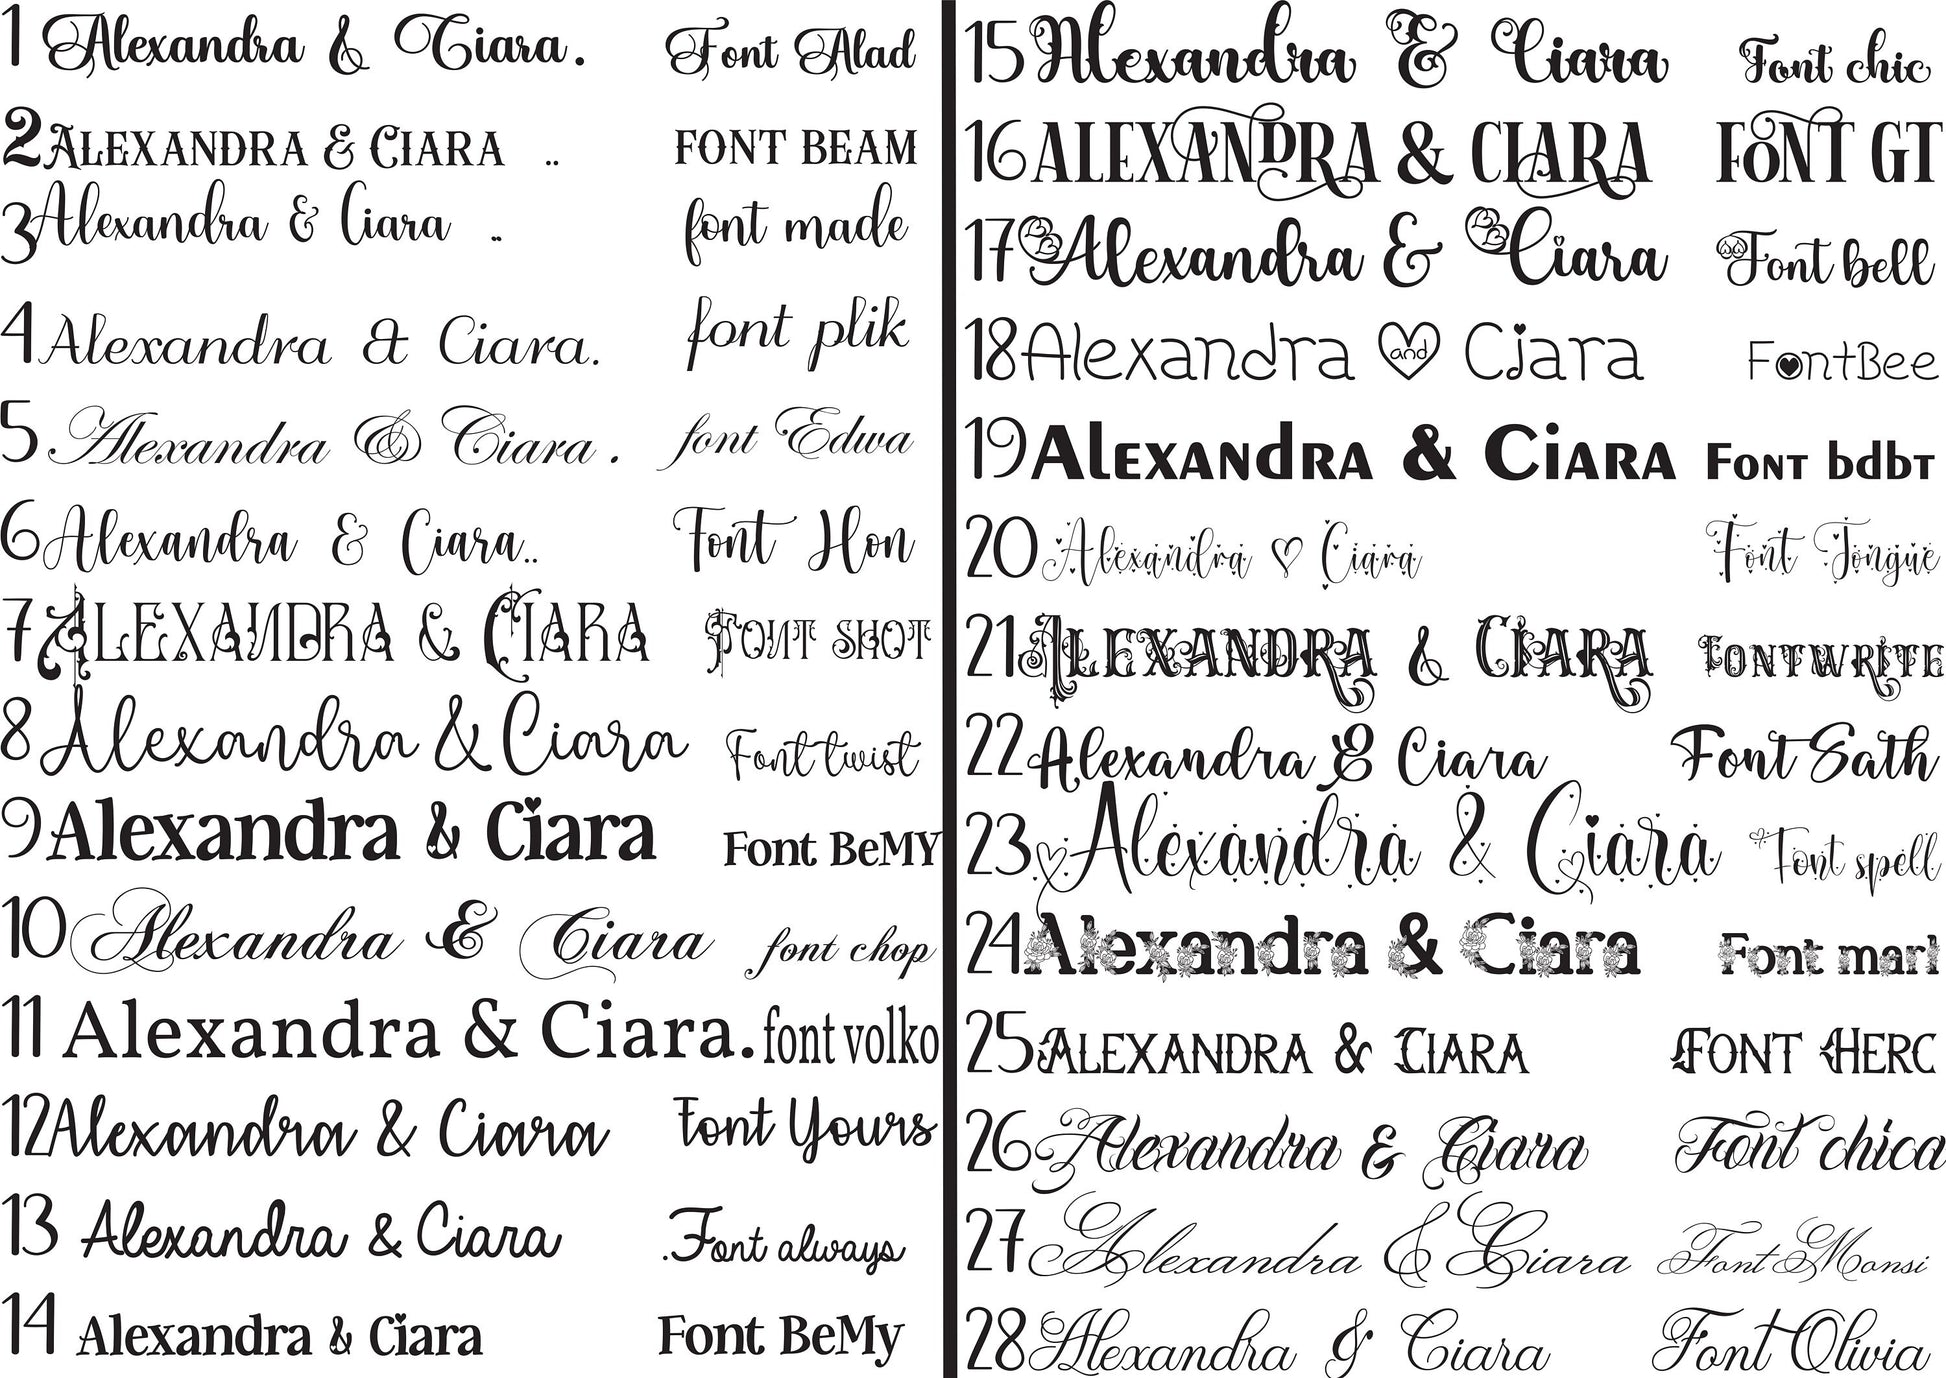 1 Alexandra & Ciara. Font Alad
2 ALEXANDRA & CIARA .. FONT BEAM
3 Alexandra & Ciara .. font made
4 Alexandra & Ciara. font plik
5 Alexandra & Ciara . font Edwa
6 Alexandra & Ciara.. Font Hon
7 ALEXANDRA & CIARA FONT SHOT
8 Alexandra & Ciara Font twist
9 Alexandra & Ciara Font BeMY
10 Alexandra & Ciara font chop
11 Alexandra & Ciara. font volko
12 Alexandra & Ciara Font Yours
13 Alexandra & Ciara .Font always
14 Alexandra & Ciara Font BeMy
15 Alexandra & Ciara Font chic
16 ALEXANDRA & CIARA FONT GT
17 Alexandra & Ciara Font bell
18 Alexandra and Ciara FontBee
19 Alexandra & Ciara Font bdbt
20 Alexandra ♡ Ciara Font Tongue
21 ALEXANDRA & CIARA FONTWRITE
22 Alexandra & Ciara Font Sath
23 Alexandra & Ciara Font spell
24 Alexandra & Ciara Font marl
25 ALEXANDRA & CIARA FONT HERC
26 Alexandra & Ciara Font chica
27 Alexandra & Ciara Font Monsi
28 Alexandra & Ciara Font Olivia